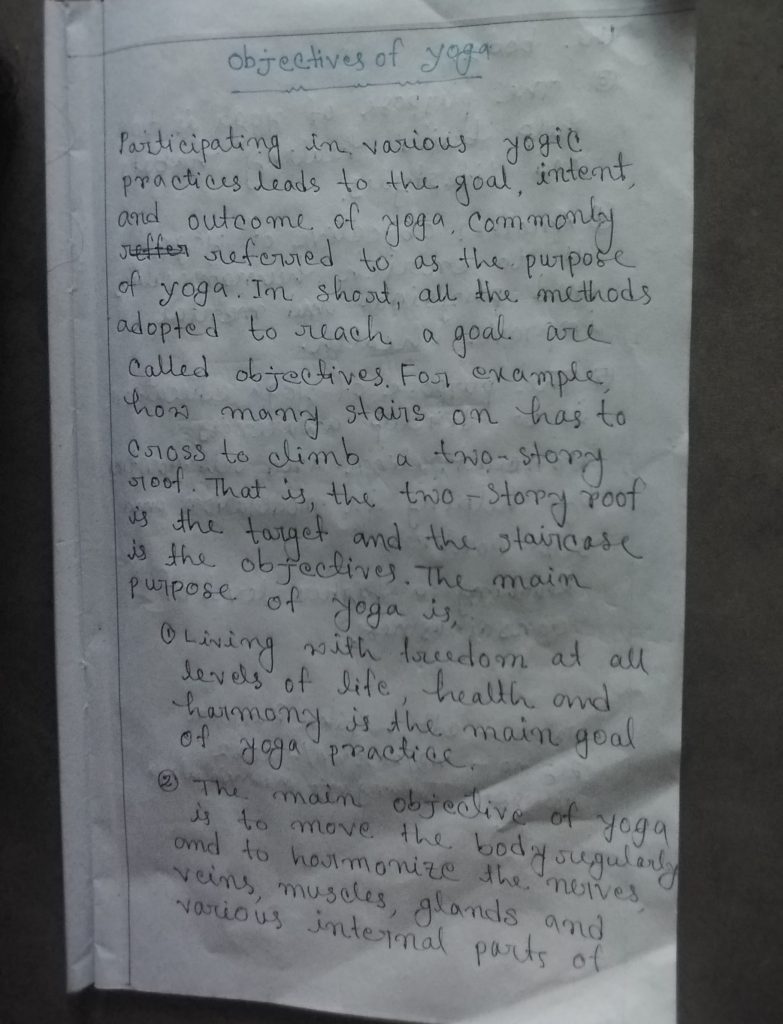 Objectives of yoga
Participating in various yogic
practices leads to the goal, intent,
and outcome of yoga, commonly
reffer referred to as the purpose
of yoga. In short, all the methods
adopted to reach a goal are
called objectives. For example,
how many stairs on has to
cross to climb a two-story
roof. That is, the two-story roof
is the target and the staircase
is the objectives. The main
purpose of yoga is,
① Living with freedom at all
levels of life, health and
harmony is the main goal
of yoga practice.
② The main objective of yoga
is to move the body regularly
and to harmonize the nerves,
veins, muscles, glands and
various internal parts of